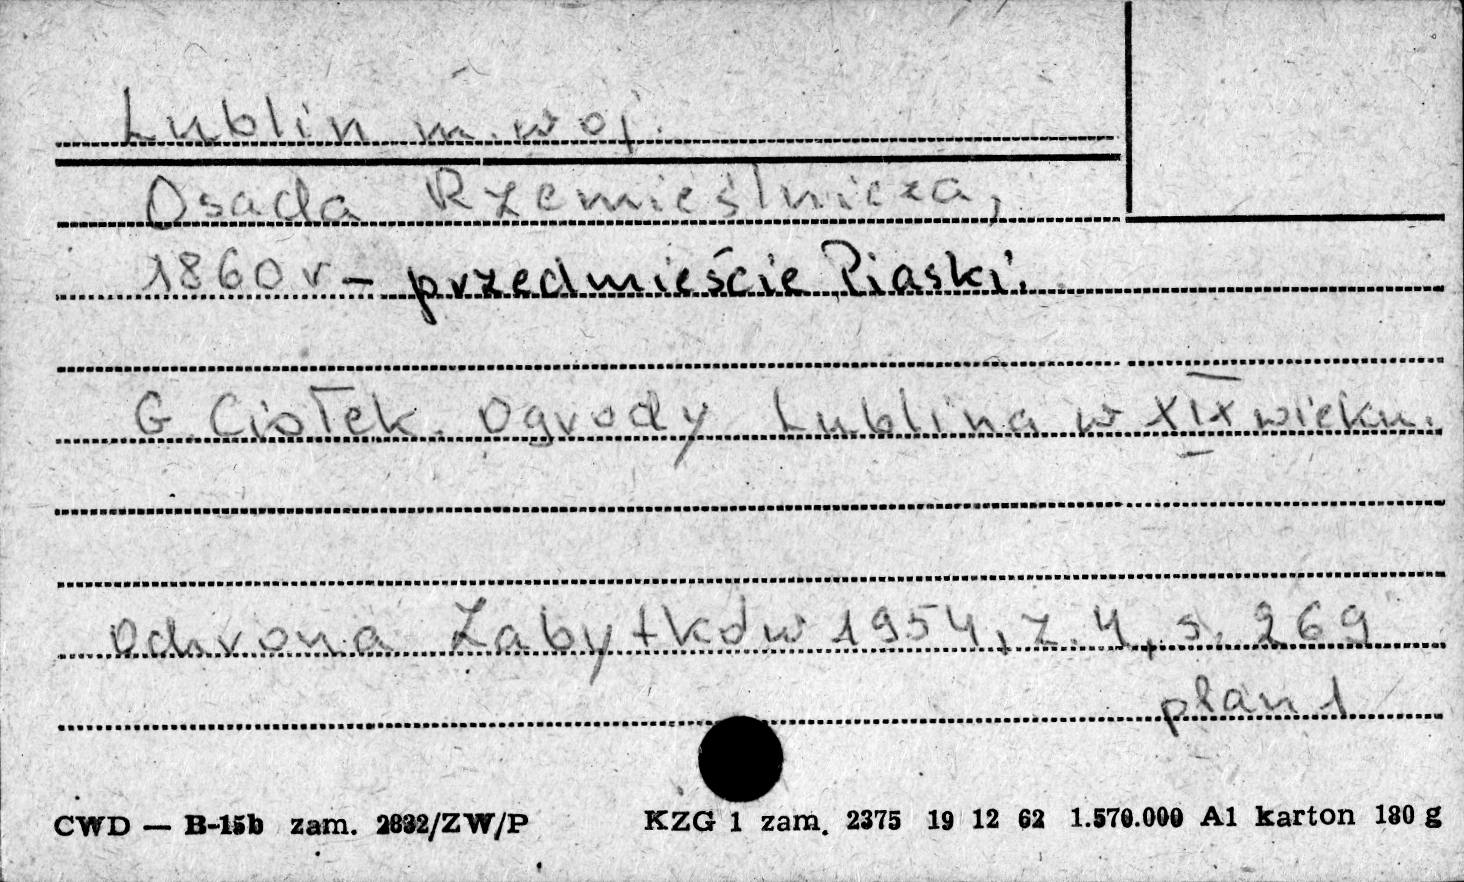 Lublin m. woj.
Osada Rzemieślnicza,
1860 r – przedmieście Piaski.
G. Ciołek. Ogrody Lublina w XIX wieku.
Ochrona Zabytków 1954, z. 4, s. 269
plan 1
CWD — B-15b zam. 2832/ZW/P KZG 1 zam. 2375 19 12 62 1.570.000 A1 karton 180 g